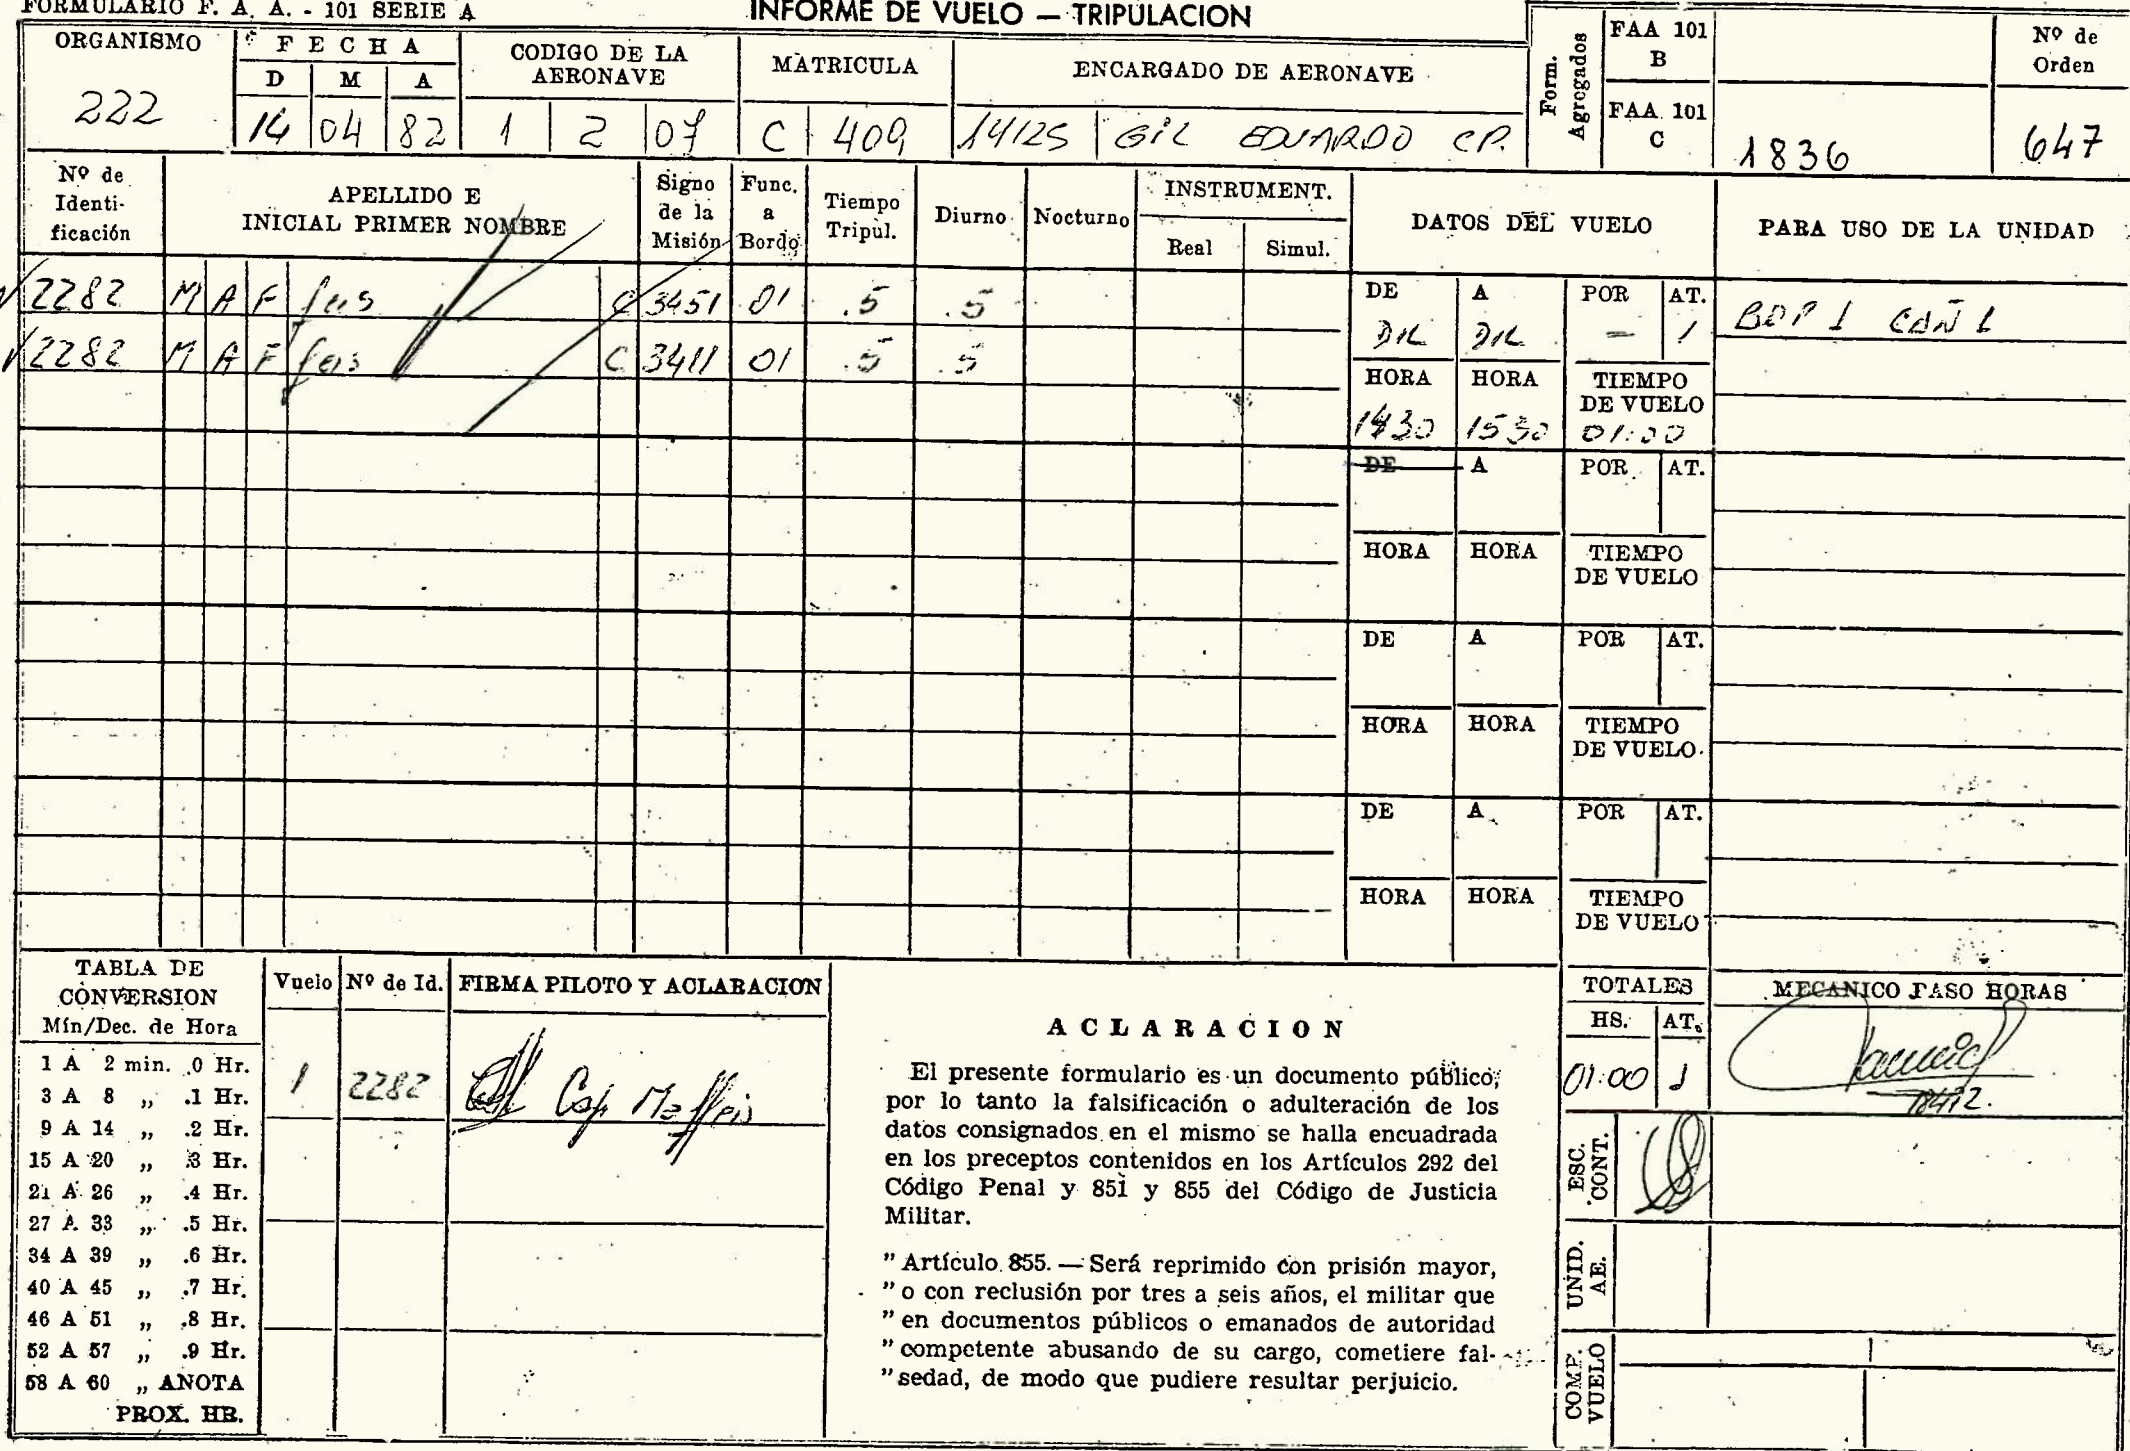 FORMULARIO F. A. A. - 101 SERIE A
INFORME DE VUELO — TRIPULACION
ORGANISMO
222
FECHA
D M A
14 04 82
CODIGO DE LA
AERONAVE
1 2 07
MATRICULA
C 409
ENCARGADO DE AERONAVE
14125 GIL EDUARDO CP.
Form.
Agregados
FAA 101
B
FAA 101
C
1836
Nº de
Orden
647
Nº de
Identi-
ficación
APELLIDO E
INICIAL PRIMER NOMBRE
Signo
de la
Misión
Func.
a
Bordo
Tiempo
Tripul.
Diurno
Nocturno
INSTRUMENT.
Real Simul.
DATOS DEL VUELO
PARA USO DE LA UNIDAD
2282 M A F C 3451 01 .5 .5
2282 M A F C 3411 01 .5 .5
DE A POR AT.
DIL DIL — 1
BDP 1 CAÑ 1
HORA HORA TIEMPO
DE VUELO
1430 1530 01:00
DE A POR AT.
HORA HORA TIEMPO
DE VUELO
DE A POR AT.
HORA HORA TIEMPO
DE VUELO
DE A POR AT.
HORA HORA TIEMPO
DE VUELO
TABLA DE
CONVERSION
Mín/Dec. de Hora
1 A 2 min. .0 Hr.
3 A 8 „ .1 Hr.
9 A 14 „ .2 Hr.
15 A 20 „ .3 Hr.
21 A 26 „ .4 Hr.
27 A 33 „ .5 Hr.
34 A 39 „ .6 Hr.
40 A 45 „ .7 Hr.
46 A 51 „ .8 Hr.
52 A 57 „ .9 Hr.
58 A 60 „ ANOTA
PROX. HR.
Vuelo Nº de Id. FIRMA PILOTO Y ACLARACION
1 2282 Cap Maffeis
ACLARACION
El presente formulario es un documento público,
por lo tanto la falsificación o adulteración de los
datos consignados en el mismo se halla encuadrada
en los preceptos contenidos en los Artículos 292 del
Código Penal y 851 y 855 del Código de Justicia
Militar.
" Artículo 855. — Será reprimido con prisión mayor,
" o con reclusión por tres a seis años, el militar que
" en documentos públicos o emanados de autoridad
" competente abusando de su cargo, cometiere fal-
" sedad, de modo que pudiere resultar perjuicio.
TOTALES
HS. AT.
01:00 1
MECANICO PASO HORAS
ESC.
CONT.
UNID.
AE.
COMP.
VUELO